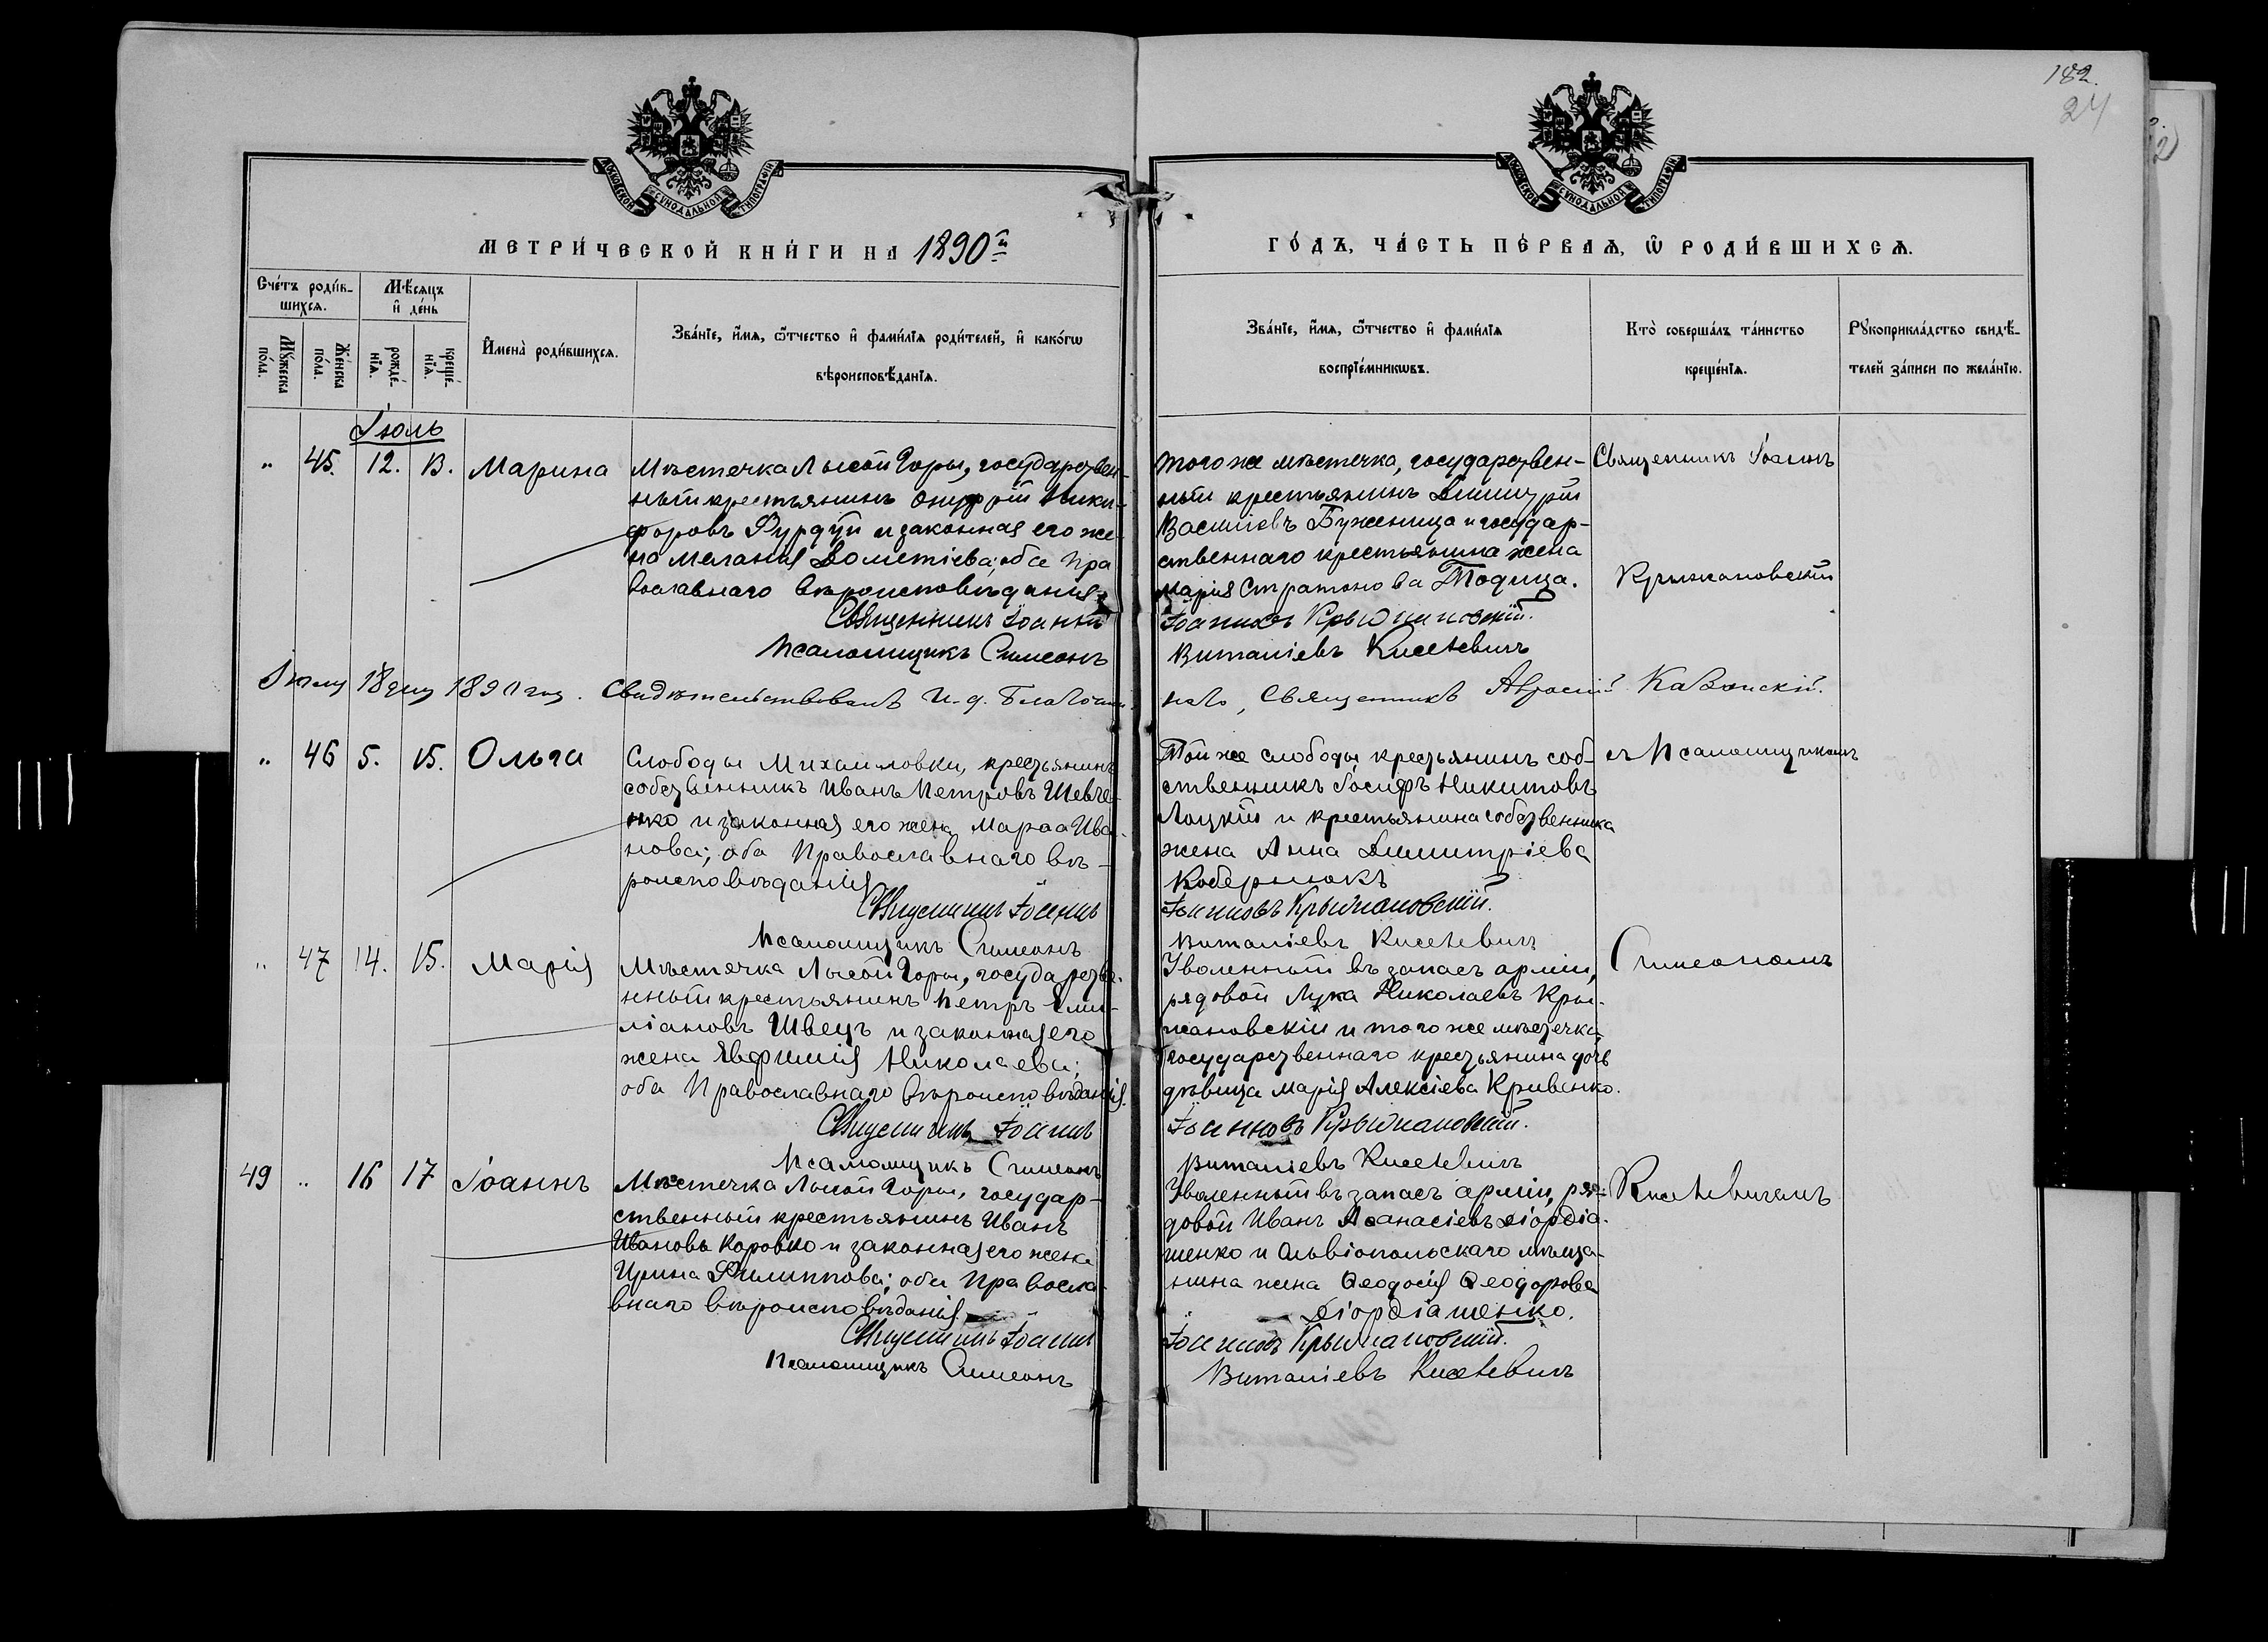 182.
24
МОСКОВСКОЙ СѴНОДАЛЬНОЙ ТИПОГРАФІИ
МОСКОВСКОЙ СѴНОДАЛЬНОЙ ТИПОГРАФІИ
МЕТРИ́ЧЕСКОЙ КНИ́ГИ НА 1890й
ГО́ДЪ, ЧА́СТЬ ПЕ́РВАѦ, Ѿ РОДИ́ВШИХСѦ.
Сче́тъ роди́в-
шихсѧ.
Мꙋжеска по́ла.
Же́нска по́ла.
Мѣ́сяцъ и҆ де́нь
рожде́-
нїѧ.
креще́-
нїѧ.
И҆мена̀ роди́вшихсѧ.
Зва́нїе, и҆́мѧ, ѻ҆́тчество и҆ фами́лїѧ роди́телей, и҆ како́гѡ
вѣроисповѣ́данїѧ.
Зва́нїе, и҆́мѧ, ѻ҆́тчество и҆ фами́лїѧ
воспрїе́мникѡвъ.
Кто̀ соверша́лъ та́инство
креще́нїѧ.
Рꙋкоприкла́дство свидѣ́-
телей за́писи по жела́нїю.
Іюль
„ 45. 12. 13. Марина
Мѣстечка Лысой Горы, государствен-
ный крестьянинъ Онуфрій Ники-
форовъ Фурдуй и законная его же-
на Меланія Дометіева; оба Пра
вославнаго вѣроисповѣданія.
Священникъ Іоаннъ
Псаломщикъ Симеонъ
того же мѣстечка, государствен-
ный крестьянинъ Димитрій
Василіевъ Буженица и государ-
ственнаго крестьянина жена
Марія Стратонова Тодица.
Іоанновъ Крыжановскій.
Виталіевъ Киселевичъ
Священникъ Іоаннъ
Крыжановскій
Іюля 18 дня 1890 год. Свидѣтельствовалъ И. д. Благочин-
наго, Священникъ Казанскій.
„ 46 5. 15. Ольга
Слободы Михайловки, крестьянинъ
собственникъ Иванъ Петровъ Шевче-
нко и законная его жена Марѳа Ива-
нова; оба Православнаго вѣ-
роисповѣданія
Священникъ Іоаннъ
Псаломщикъ Симеонъ
Той же слободы крестьянинъ соб-
ственникъ Іосифъ Никитовъ
Лоцкій и крестьянина собственника
жена Анна Димитріева
Кобернюкъ
Іоанновъ Крыжановскій.
Виталіевъ Киселевичъ
съ Псаломщикомъ
„ 47 14. 15. Марія
Мѣстечка Лысой Горы, государстве-
нный крестьянинъ Петръ Еми-
ліановъ Швецъ и законная его
жена Евфимія Николаева;
оба Православнаго вѣроисповѣданія.
Священникъ Іоаннъ
Псаломщикъ Симеонъ
Уволенный въ запасъ арміи,
рядовой Лука Николаевъ Кры-
жановскій и того же мѣстечка,
государственнаго крестьянина дочь
дѣвица Марія Алексіева Кривенко.
Іоанновъ Крыжановскій.
Виталіевъ Киселевичъ
Симеономъ
49 „ 16 17 Іоаннъ
Мѣстечка Лысой Горы, государ-
ственный крестьянинъ Иванъ
Ивановъ Коровко и законная его жена
Ирина Филиппова; оба Правосла-
внаго вѣроисповѣданія
Священникъ Іоаннъ
Псаломщикъ Симеонъ
Уволенный въ запасъ арміи, ря-
довой Иванъ Аѳанасіевъ Діордіа-
шенко и Ольвіопольскаго мѣща-
нина жена Ѳеодосія Ѳеодорова
Діордіашенко.
Іоанновъ Крыжановскій.
Виталіевъ Киселевичъ
Киселевичемъ